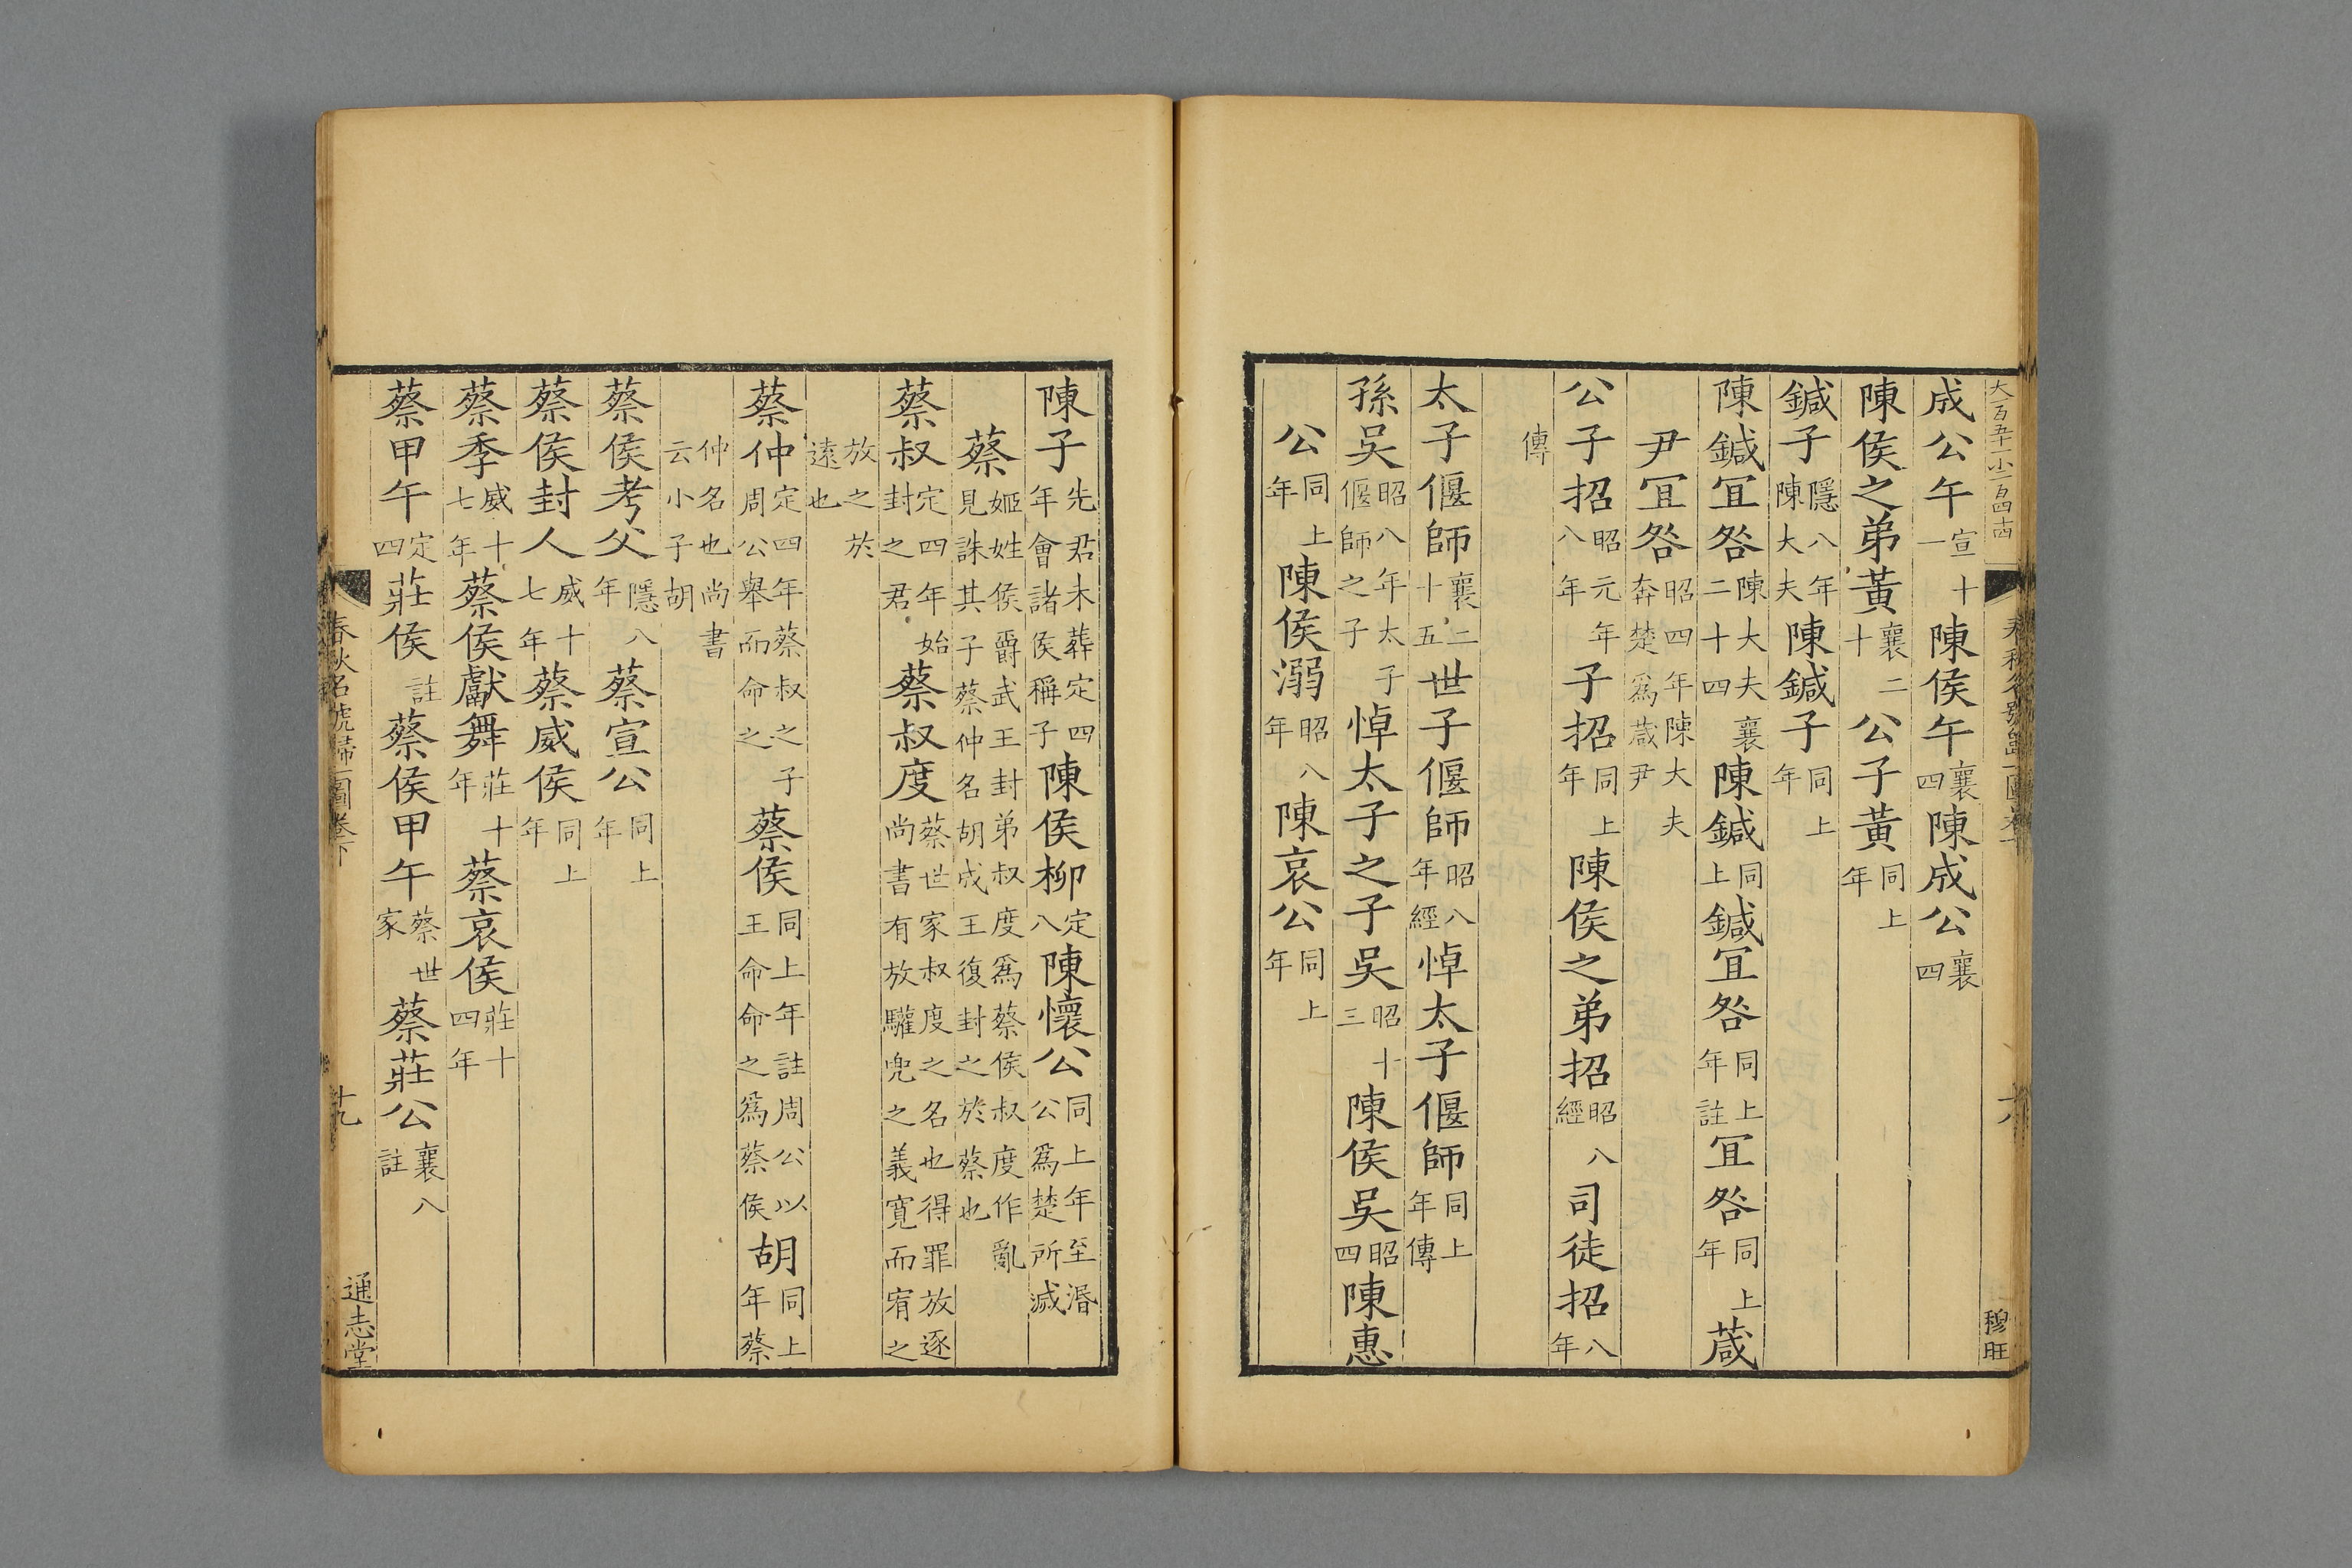 大一百五十一小二百四十四
春秋名號歸一圖卷下
十八
穆旺
成公午宣十一陳侯午襄四陳成公襄四
陳侯之弟黃襄二十公子黃同上年
鍼子隱八年陳大夫陳鍼子同上年
陳鍼冝咎陳大夫襄二十四陳鍼同上鍼冝咎同上年註冝咎同上年葴
尹冝咎昭四年陳大夫奔楚爲葴尹
公子招昭元年八年子招同上年陳侯之弟招昭八經司徒招八年
傳
太子偃師襄二十五世子偃師昭八年經悼太子偃師同上年傳
孫吳昭八年太子偃師之子悼太子之子吳昭十三陳侯吳昭四陳惠
公同上年陳侯溺昭八年陳哀公同上年
陳子先君未葬定四年會諸侯稱子陳侯柳定八陳懷公同上年至湣公爲楚所滅
蔡姬姓侯爵武王封弟叔度爲蔡侯叔度作亂見誅其子蔡仲名胡成王復封之於蔡也
蔡叔定四年始封之君蔡叔度蔡世家叔度之名也得罪放逐尚書有放驩兜之義寬而宥之
放之於遠也
蔡仲定四年蔡叔之子周公舉而命之蔡侯同上年註周公以王命命之爲蔡侯胡同上年蔡
仲名也尚書云小子胡
蔡侯考父隱八年蔡宣公同上年
蔡侯封人威十七年蔡威侯同上年
蔡季威十七年蔡侯獻舞莊十年蔡哀侯莊十四年
蔡甲午定四莊侯註蔡侯甲午蔡世家蔡莊公襄八註
春秋名號歸一圖卷下
十九
通志堂